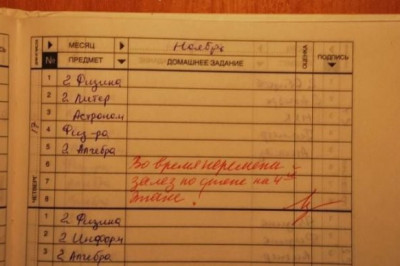 МЕСЯЦ Ноябрь
№ ПРЕДМЕТ ДОМАШНЕЕ ЗАДАНИЕ ОЦЕНКА ПОДПИСЬ
1 2 Физика
2 2 Литер
3 Астроном
4 Физ-ра
5 2 Алгебра
6 Во время перемены
7 залез по стене на 4ый
8 этаж!
ЧЕТВЕРГ 17
1 2 Физика
2 2 Информ
3 2 Алгебра